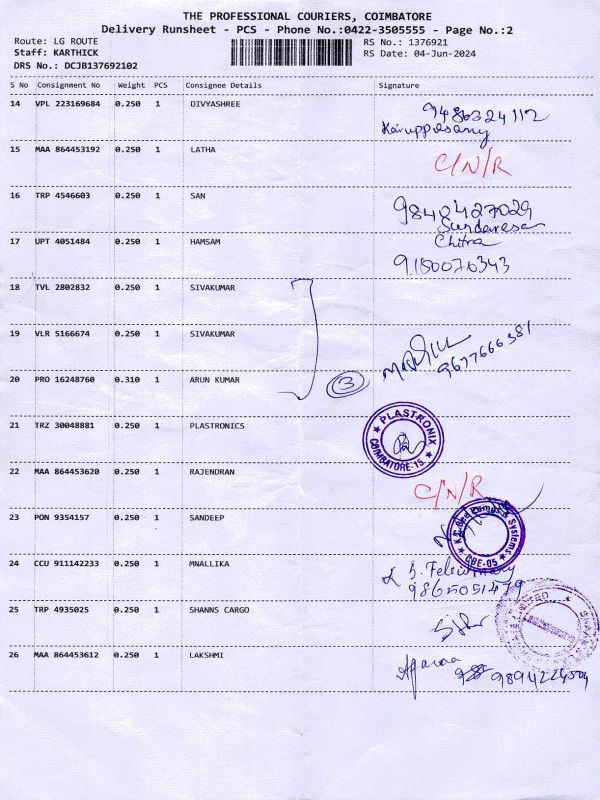 THE PROFESSIONAL COURIERS, COIMBATORE
Delivery Runsheet - PCS - Phone No.:0422-3505555 - Page No.:2
Route: LG ROUTE RS No.: 1376921
Staff: KARTHICK RS Date: 04-Jun-2024
DRS No.: DCJB137692102
S No Consignment No Weight PCS Consignee Details Signature
14 VPL 223169684 0.250 1 DIVYASHREE 9486324112
Karuppasamy
15 MAA 864453192 0.250 1 LATHA C/N/R
16 TRP 4546603 0.250 1 SAN 9840427029
Sundaresan
17 UPT 4051484 0.250 1 HAMSAM Chitra
9180070343
18 TVL 2802832 0.250 1 SIVAKUMAR
19 VLR 5166674 0.250 1 SIVAKUMAR 9677666381
20 PRO 16248760 0.310 1 ARUN KUMAR 3
21 TRZ 30048881 0.250 1 PLASTRONICS PLASTRONIX COIMBATORE-15
22 MAA 864453620 0.250 1 RAJENDRAN C/N/R
23 PON 9354157 0.250 1 SANDEEP & Systems CBE-05
24 CCU 911142233 0.250 1 MNALLIKA
9865051479
25 TRP 4935025 0.250 1 SHANNS CARGO
26 MAA 864453612 0.250 1 LAKSHMI 9894224504